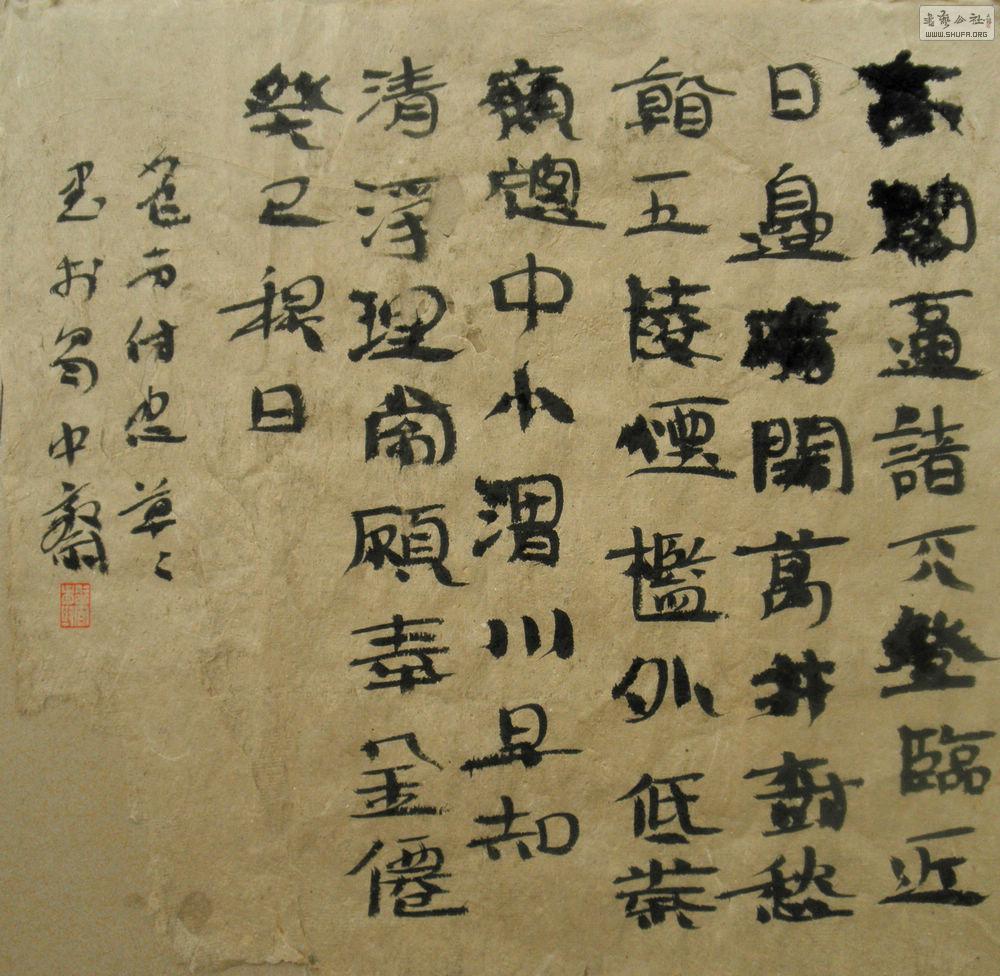 高閣逼諸天登臨近
日邊晴開萬井樹愁
看五陵煙檻外低秦
嶺窗中小渭川早知
清淨理常願奉金僊
癸巳日
草々
於蜀中齋
書藝公社
WWW.SHUFA.ORG